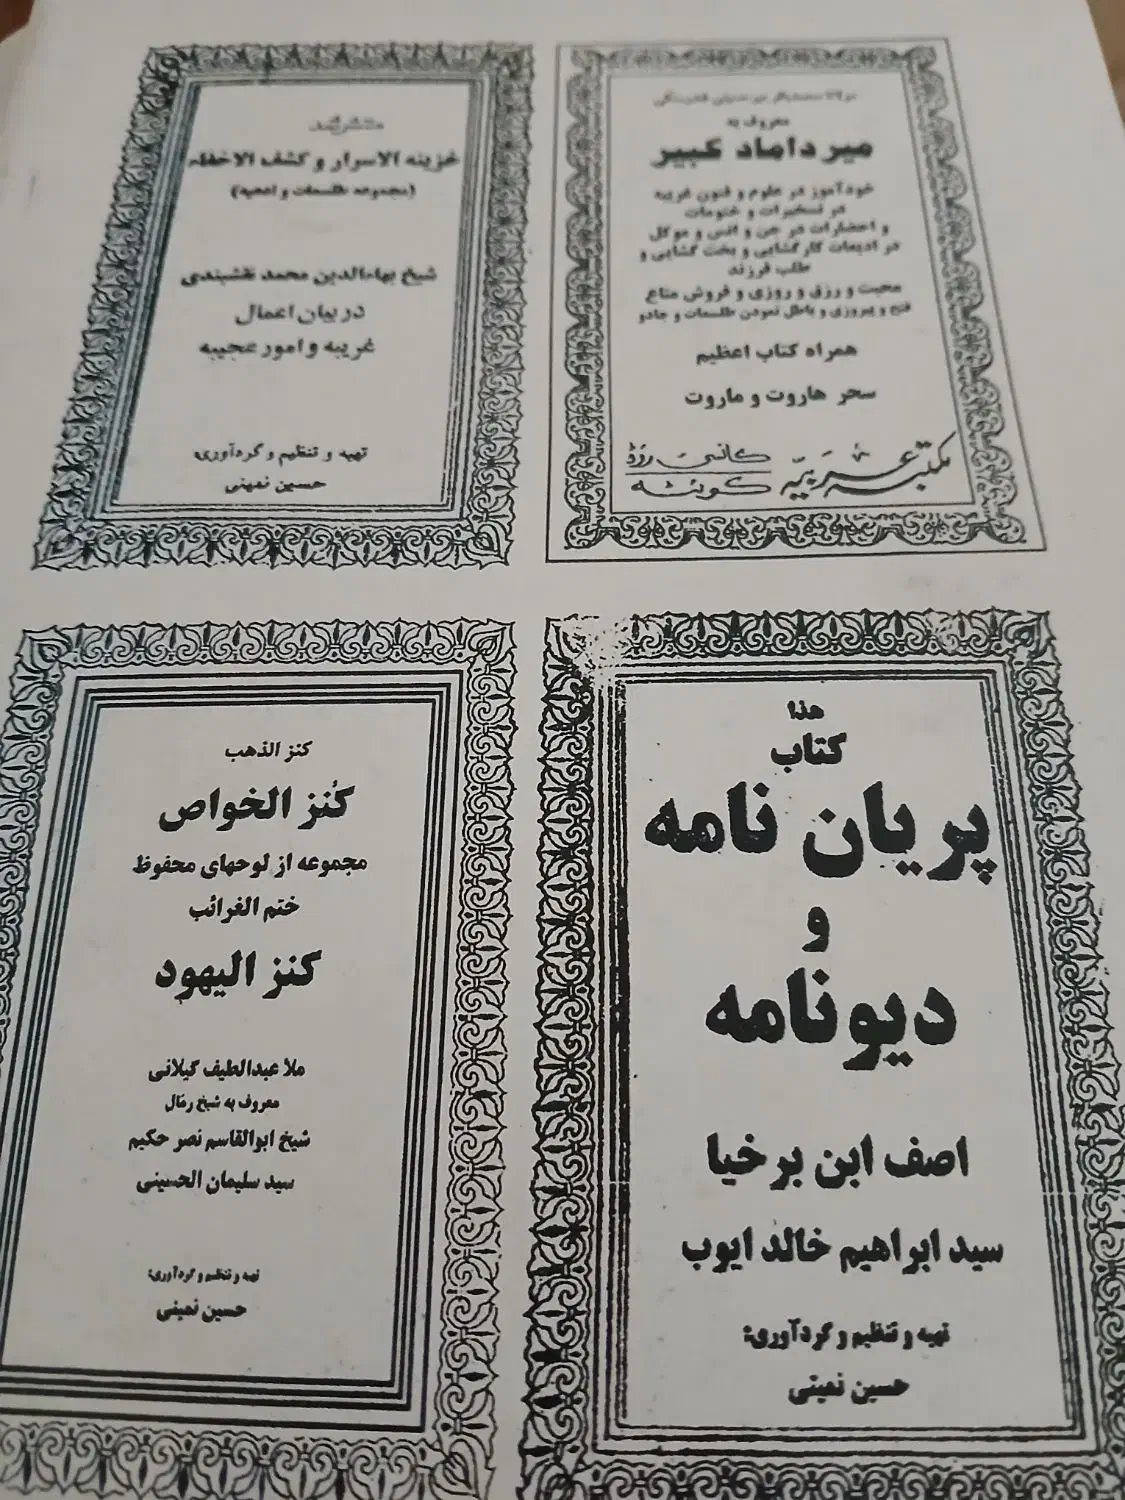 معروف به
میرداماد کبیر
خودآموز در علوم و فنون غریبه
در تسخیرات و ختومات
و احضارات در جن و انس و موکل
در ادیعات کارگشایی و بخت گشایی و
طلب فرزند
محبت و رزق و روزی و فروش متاع
فتح و پیروزی و باطل نمودن طلسمات و جادو
همراه کتاب اعظیم
سحر هاروت و ماروت
مکتبہ عربیہ کانسی روڈ کوئٹہ
منتشر شد
خزینه الاسرار و کشف الاخفاء
(مجموعه طلسمات و ادعیه)
شیخ بهاءالدین محمد نقشبندی
در بیان اعمال
غریبه و امور عجیبه
تهیه و تنظیم و گردآوری:
حسین نمینی
هذا
کتاب
پریان نامه
و
دیونامه
اصف ابن برخیا
سید ابراهیم خالد ایوب
تهیه و تنظیم و گردآوری:
حسین نمینی
کنز الذهب
کُنز الخواص
مجموعه از لوحهای محفوظ
ختم الغرائب
کنز الیهود
ملا عبدالطیف گیلانی
معروف به شیخ رمّال
شیخ ابوالقاسم نصر حکیم
سید سلیمان الحسینی
تهیه و تنظیم و گردآوری:
حسین نمینی